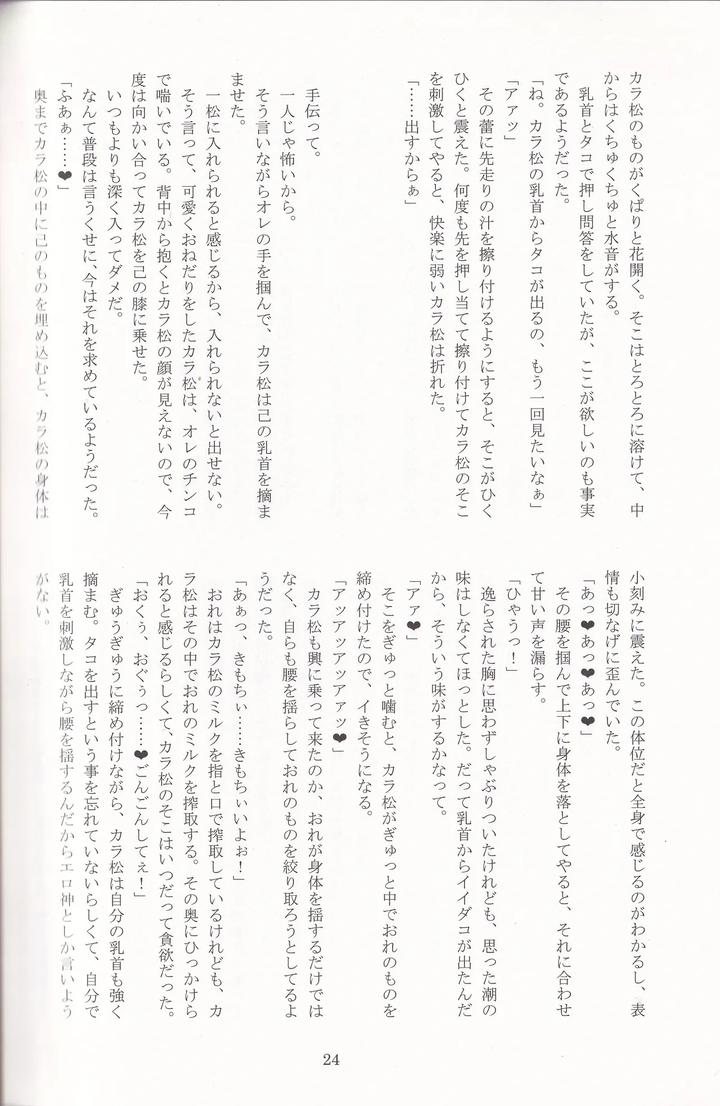 カラ松のものがくぱりと花開く。そこはとろとろに溶けて、中
からはくちゅくちゅと水音がする。
乳首とタコで押し問答をしていたが、ここが欲しいのも事実
であるようだった。
「ね。カラ松の乳首からタコが出るの、もう一回見たいなぁ」
「アァッ」
その蕾に先走りの汁を擦り付けるようにすると、そこがひく
ひくと震えた。何度も先を押し当てて擦り付けてカラ松のそこ
を刺激してやると、快楽に弱いカラ松は折れた。
「……出すからぁ」
手伝って。
一人じゃ怖いから。
そう言いながらオレの手を掴んで、カラ松は己の乳首を摘ま
ませた。
一松に入れられると感じるから、入れられないと出せない。
そう言って、可愛くおねだりをしたカラ松は、オレのチンコ
で喘いでいる。背中から抱くとカラ松の顔が見えないので、今
度は向かい合ってカラ松を己の膝に乗せた。
いつもよりも深く入ってダメだ。
なんて普段は言うくせに、今はそれを求めているようだった。
「ふあぁ……❤」
奥までカラ松の中に己のものを埋め込むと、カラ松の身体は
小刻みに震えた。この体位だと全身で感じるのがわかるし、表
情も切なげに歪んでいた。
「あっ❤あっ❤あっ❤」
その腰を掴んで上下に身体を落としてやると、それに合わせ
て甘い声を漏らす。
「ひゃうっ！」
逸らされた胸に思わずしゃぶりついたけれども、思った潮の
味はしなくてほっとした。だって乳首からイイダコが出たんだ
から、そういう味がするかなって。
「アァ❤」
そこをぎゅっと噛むと、カラ松がぎゅっと中でおれのものを
締め付けたので、イきそうになる。
「アッアッアッアァッ❤」
カラ松も興に乗って来たのか、おれが身体を揺するだけでは
なく、自らも腰を揺らしておれのものを絞り取ろうとしてるよ
うだった。
「あぁっ、きもちぃ……きもちぃいよぉ！」
おれはカラ松のミルクを指と口で搾取しているけれども、カ
ラ松はその中でおれのミルクを搾取する。その奥にひっかけら
れると感じるらしくて、カラ松のそこはいつだって貪欲だった。
「おくぅ、おぐぅっ……❤ごんごんしてぇ！」
ぎゅうぎゅうに締め付けながら、カラ松は自分の乳首も強く
摘まむ。タコを出すという事を忘れていないらしくて、自分で
乳首を刺激しながら腰を揺するんだからエロ神としか言いよう
がない。
24